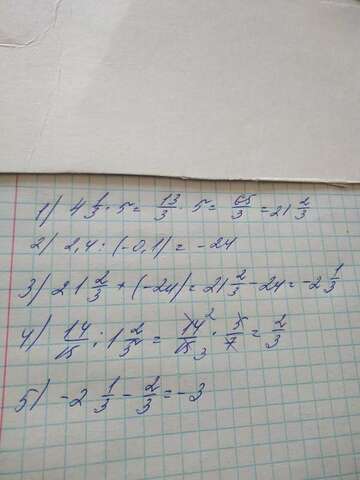 1) 4 1/3 · 5 = 13/3 · 5 = 65/3 = 21 2/3
2) 2,4 : (-0,1) = -24
3) 21 2/3 + (-24) = 21 2/3 - 24 = -2 1/3
4) 14/15 : 1 2/5 = 14²/15₃ · 5/7 = 2/3
5) -2 1/3 - 2/3 = -3